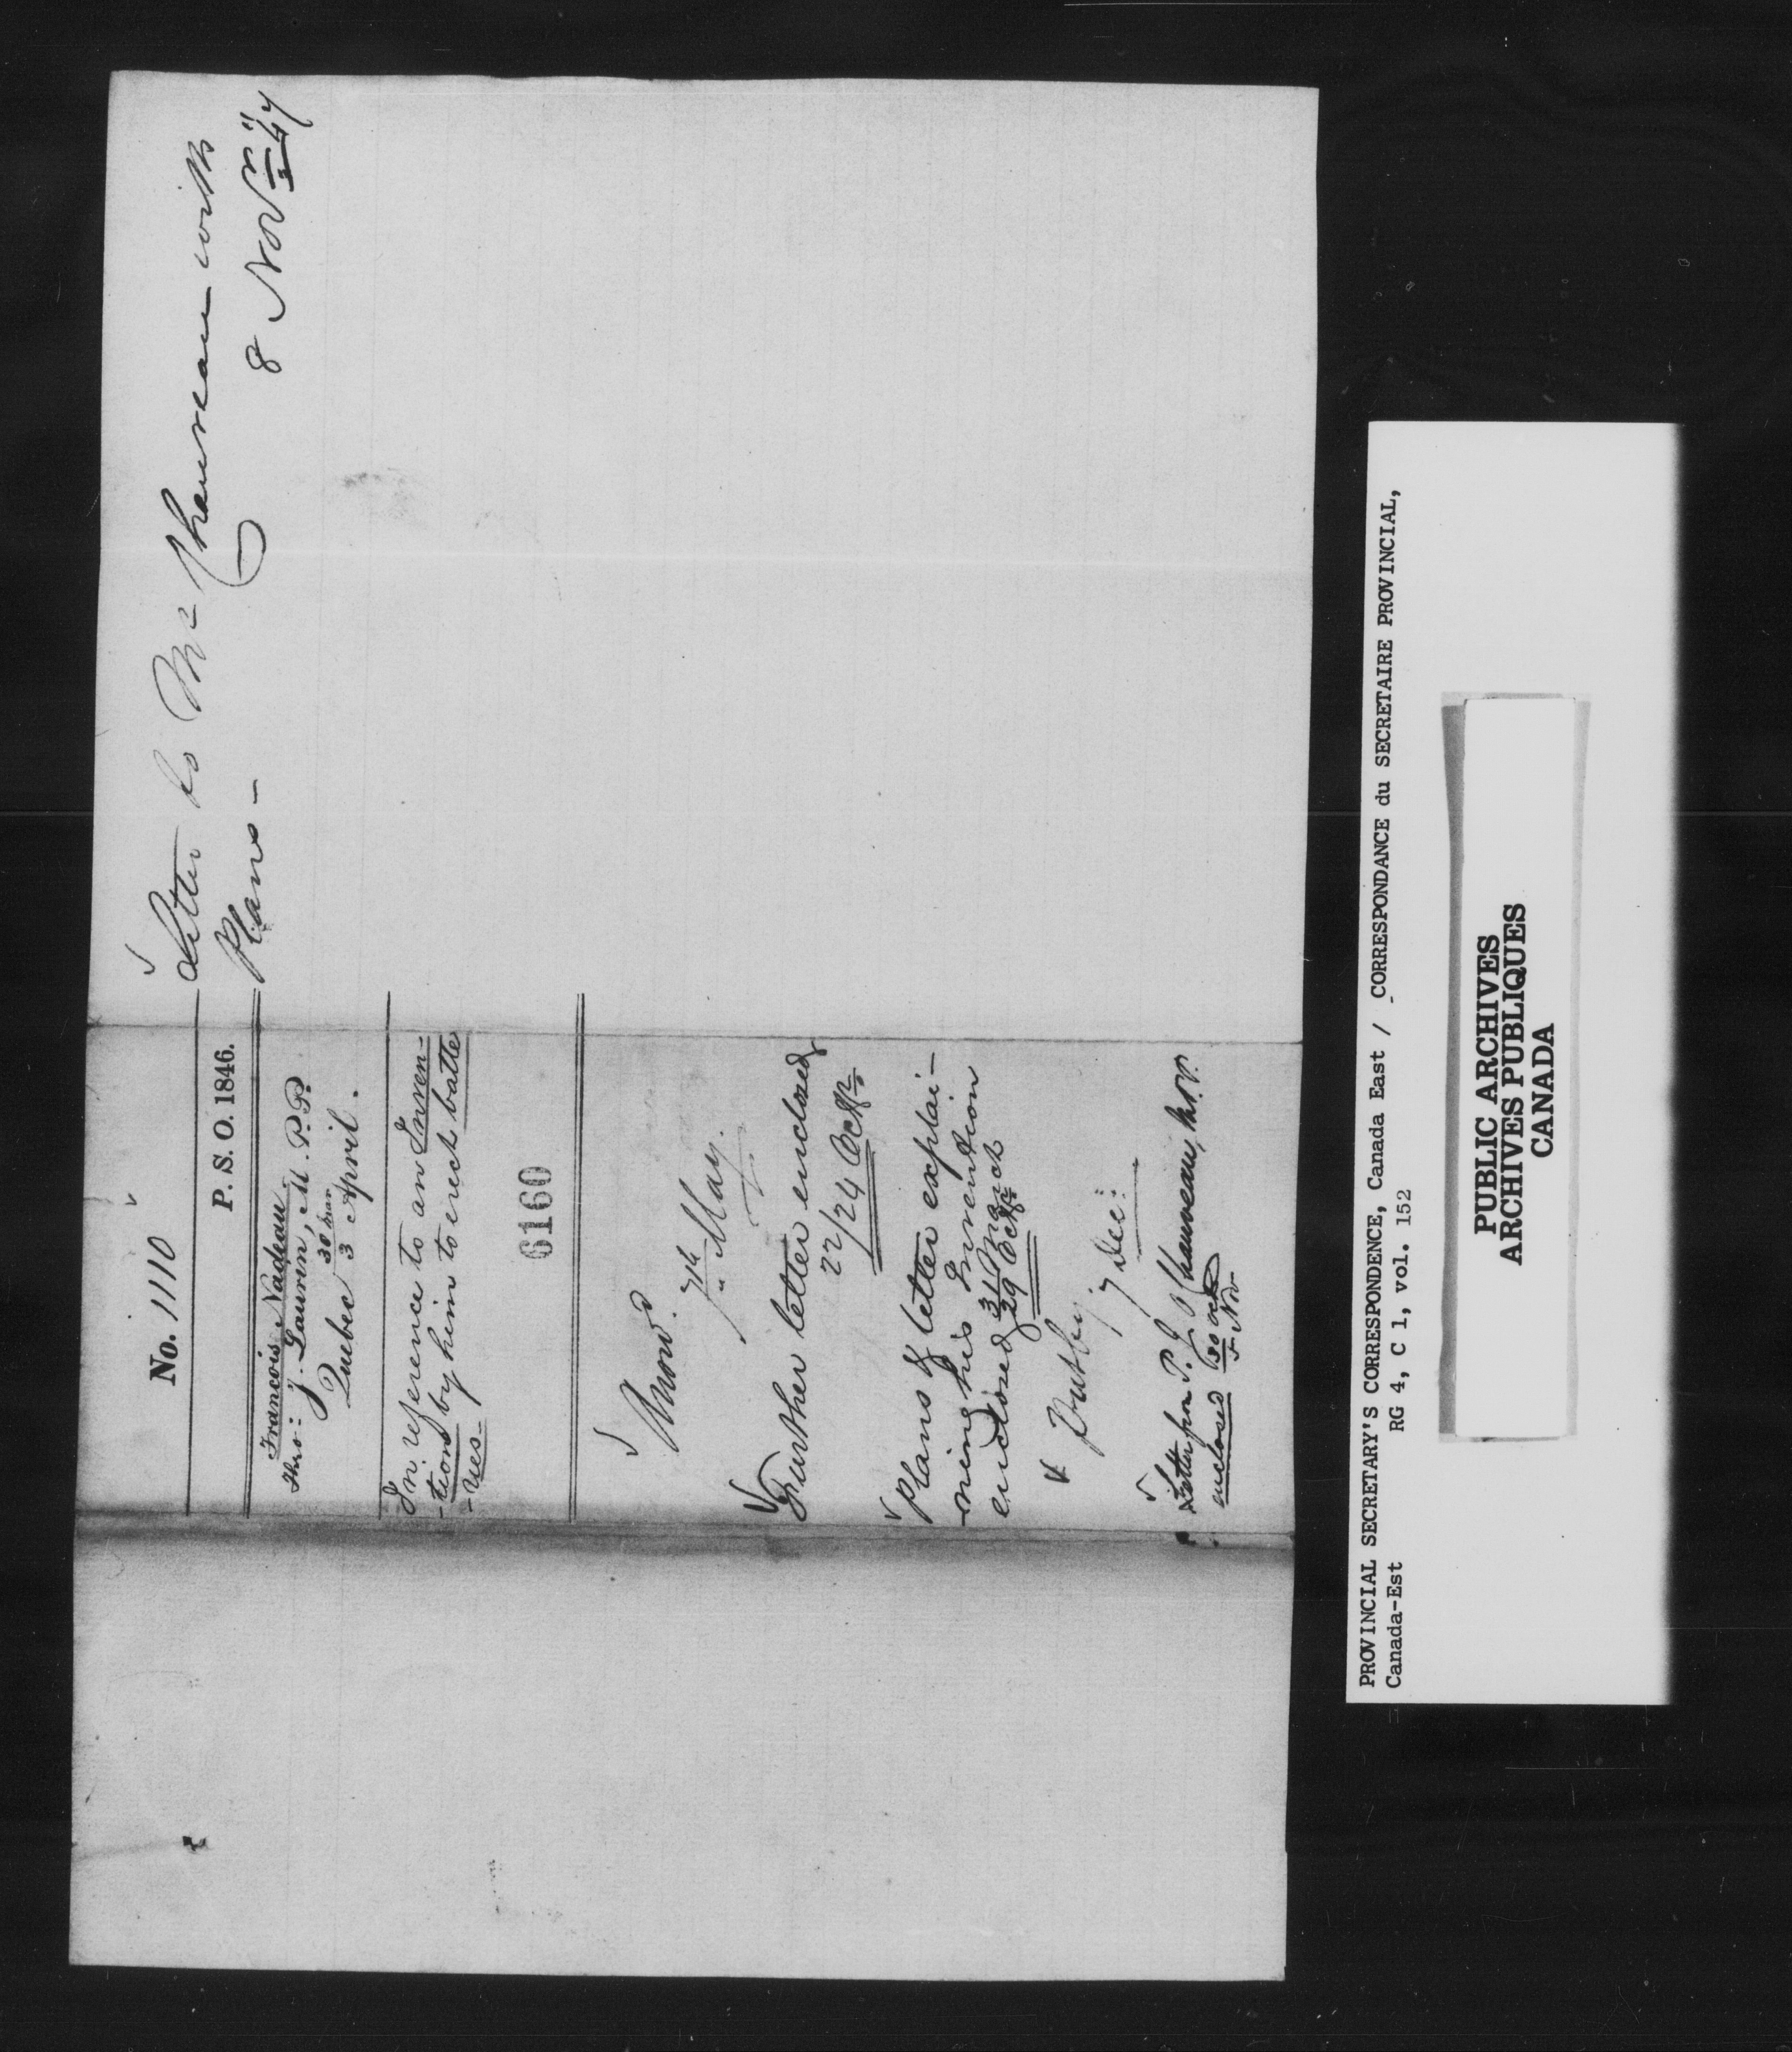 No. 1110
P. S. O. 1846.
Francois Nadeau
thro: J. Laurin, M. P. P.
Quebec 30 Mar
3 April.
In reference to an Inven-
-tion by him to erect batte
-ries-
6160
Answd.
7th May.
Further letter enclosed
22/24 Octr
Plans & letter explai-
-ning his Invention
enclosed 31 March
29 Octr
7 Dec:
Letter from P. J. O Chauveau, M.P.P.
enclosed 30 Oct
5 Nov
Letter to Mr Chauveau with
Plans - 8 Novr "47
PROVINCIAL SECRETARY'S CORRESPONDENCE, Canada East / CORRESPONDANCE du SECRETAIRE PROVINCIAL,
Canada-Est RG 4, C 1, vol. 152
PUBLIC ARCHIVES
ARCHIVES PUBLIQUES
CANADA